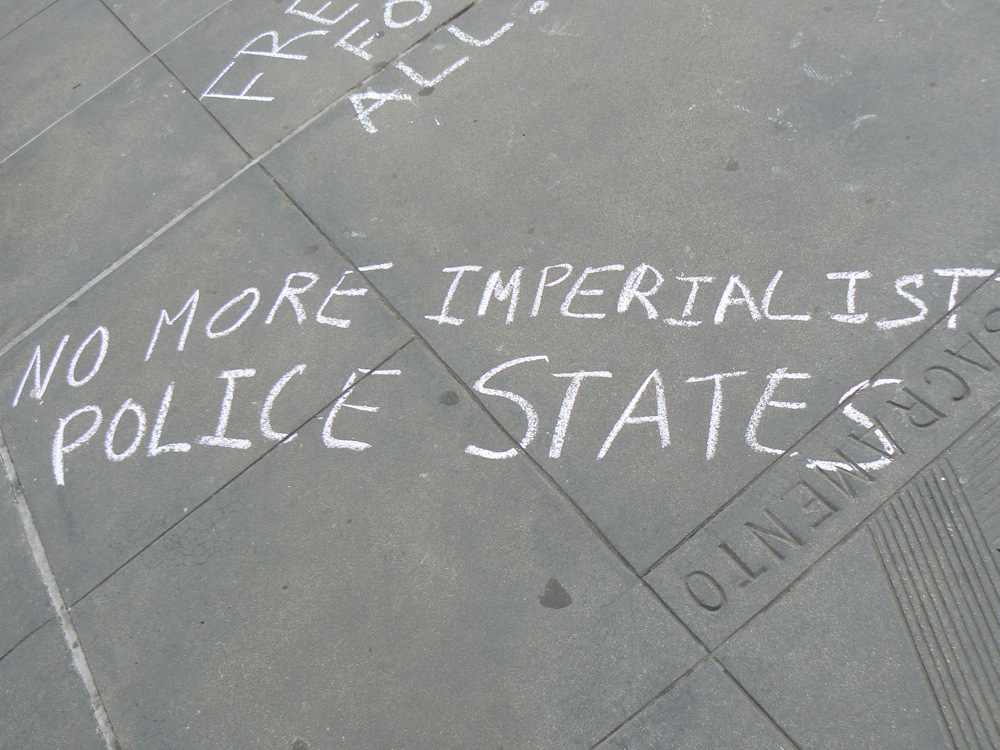 FREE
FO
ALL
NO MORE IMPERIALIST
POLICE STATES
SACRAMENTO